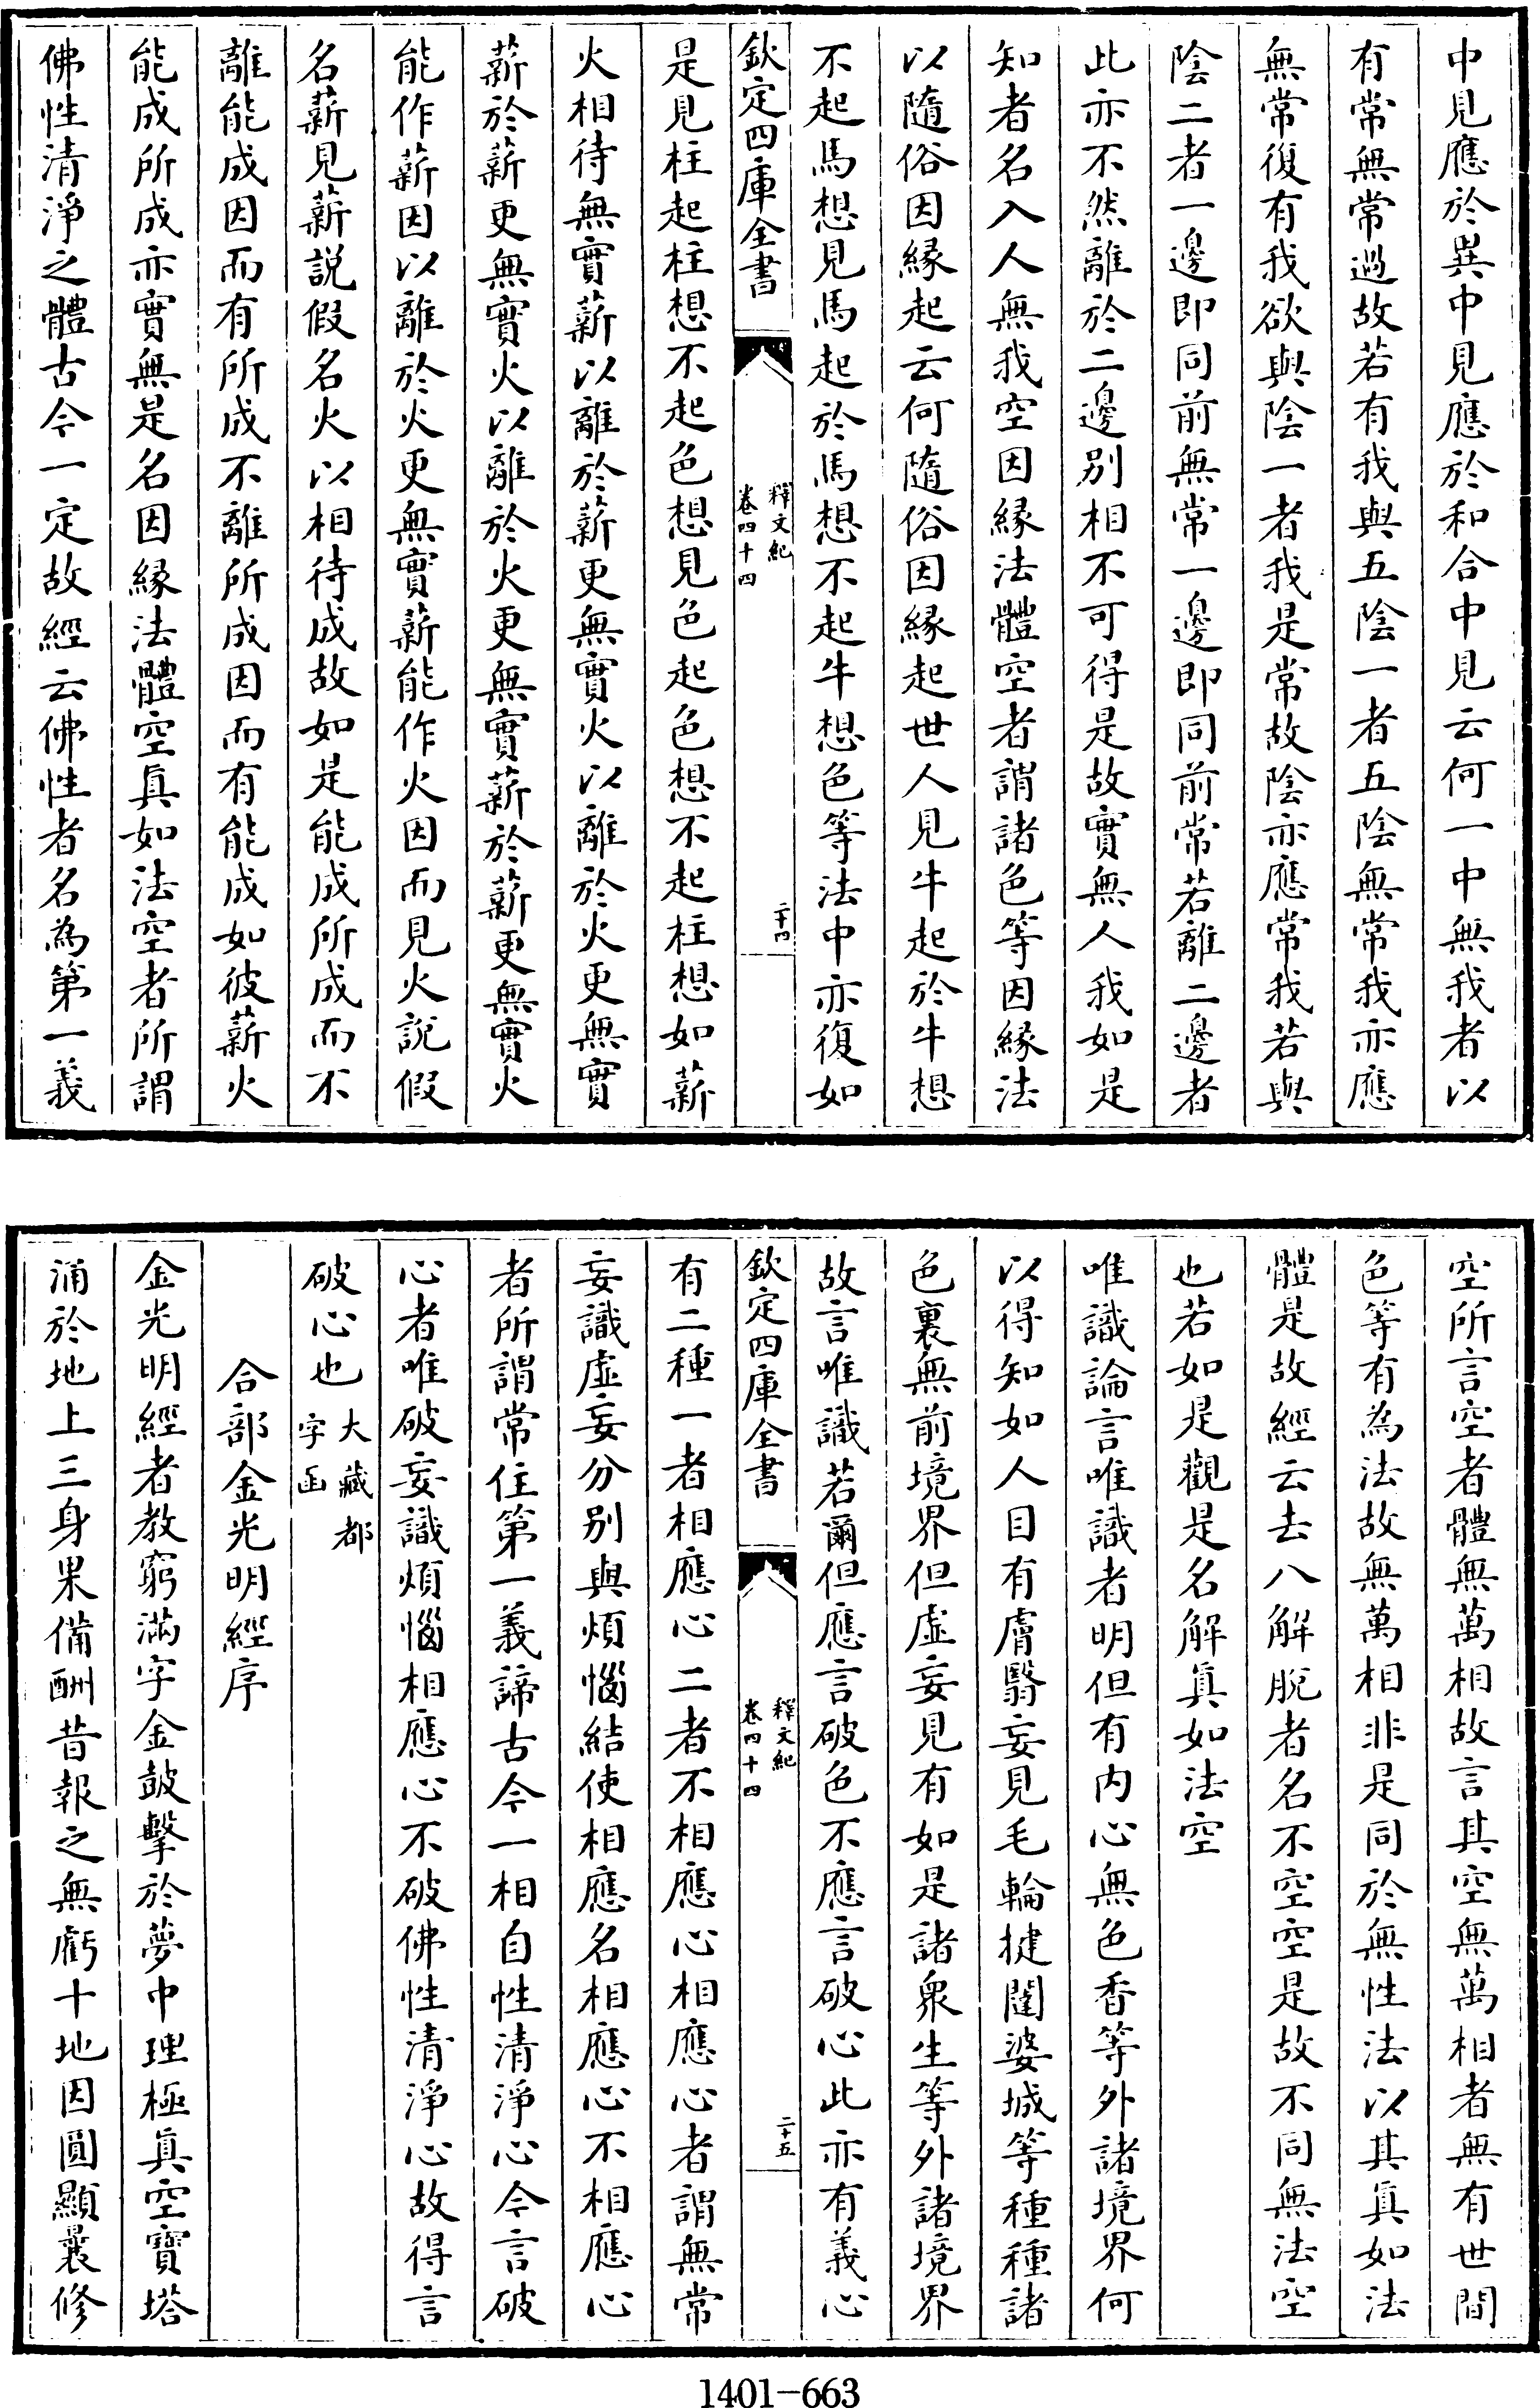 中見應於異中見應於和合中見云何一中無我者以
有常無常過故若有我與五陰一者五陰無常我亦應
無常復有我欲與陰一者我是常故陰亦應常我若與
陰二者一邊即同前無常一邊即同前常若離二邊者
此亦不然離於二邊别相不可得是故實無人我如是
知者名入人無我空因緣法體空者謂諸色等因緣法
以隨俗因緣起云何隨俗因緣起世人見牛起於牛想
不起馬想見馬起於馬想不起牛想色等法中亦復如
欽定四庫全書
釋文紀
卷四十四
二十四
是見柱起柱想不起色想見色起色想不起柱想如薪
火相待無實薪以離於薪更無實火以離於火更無實
薪於薪更無實火以離於火更無實薪於薪更無實火
能作薪因以離於火更無實薪能作火因而見火說假
名薪見薪説假名火以相待成故如是能成所成而不
離能成因而有所成不離所成因而有能成如彼薪火
能成所成亦實無是名因緣法體空真如法空者所謂
佛性清淨之體古今一定故經云佛性者名為第一義
空所言空者體無萬相故言其空無萬相者無有世間
色等有為法故無萬相非是同於無性法以其真如法
體是故經云去八解脫者名不空空是故不同無法空
也若如是觀是名解真如法空
唯識論言唯識者明但有内心無色香等外諸境界何
以得知如人目有膚翳妄見毛輪揵闥婆城等種種諸
色裏無前境界但虛妄見有如是諸衆生等外諸境界
故言唯識若爾但應言破色不應言破心此亦有義心
欽定四庫全書
釋文紀
卷四十四
二十五
有二種一者相應心二者不相應心相應心者謂無常
妄識虛妄分别與煩惱結使相應名相應心不相應心
者所謂常住第一義諦古今一相自性清淨心今言破
心者唯破妄識煩惱相應心不破佛性清淨心故得言
破心也大藏都
字函
合部金光明經序
金光明經者教窮滿字金鼓擊於夢中理極真空寶塔
涌於地上三身果備酬昔報之無虧十地因圓顯曩修
1401-663